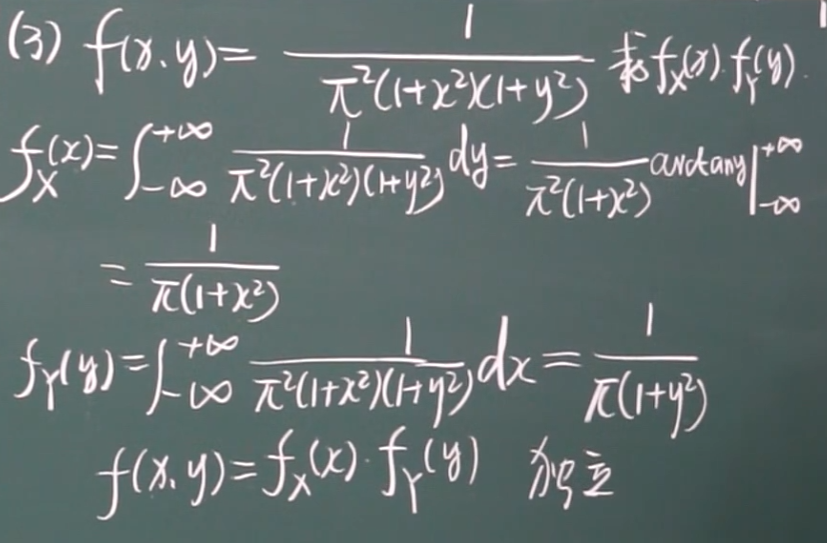 (3) f(x,y)= 1/(π²(1+x²)(1+y²)) 求f_X(x).f_Y(y).
f_X(x)=∫_{-∞}^{+∞} 1/(π²(1+x²)(1+y²)) dy= 1/(π²(1+x²)) arctany|_{-∞}^{+∞}
= 1/(π(1+x²))
f_Y(y)=∫_{-∞}^{+∞} 1/(π²(1+x²)(1+y²)) dx= 1/(π(1+y²))
f(x,y)=f_X(x)·f_Y(y) 独立